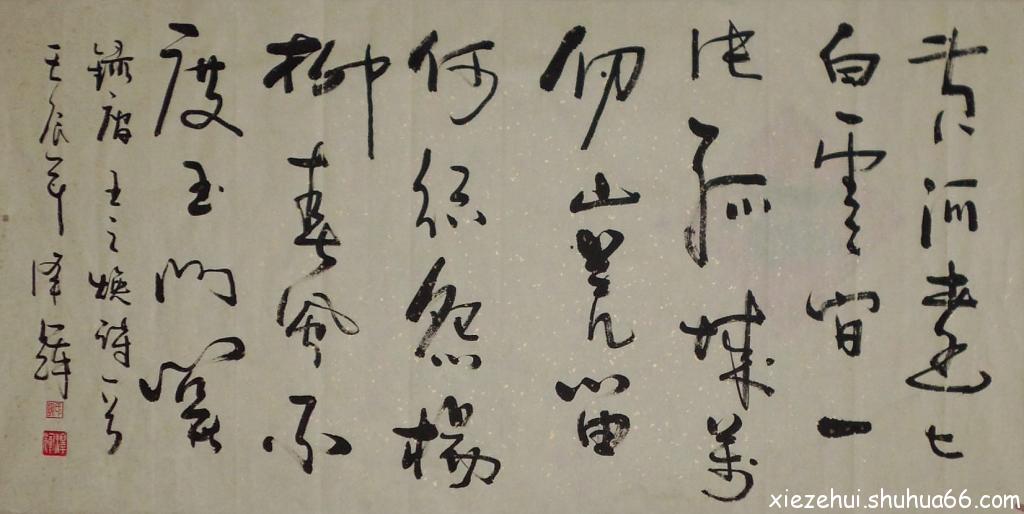 黄河遠上
白雲间一
片孤城萬
仞山羌笛
何须怨楊
柳春風不
度玉門関
錄唐王之焕诗一首
壬辰年泽辉
xiezehui.shuhua66.com